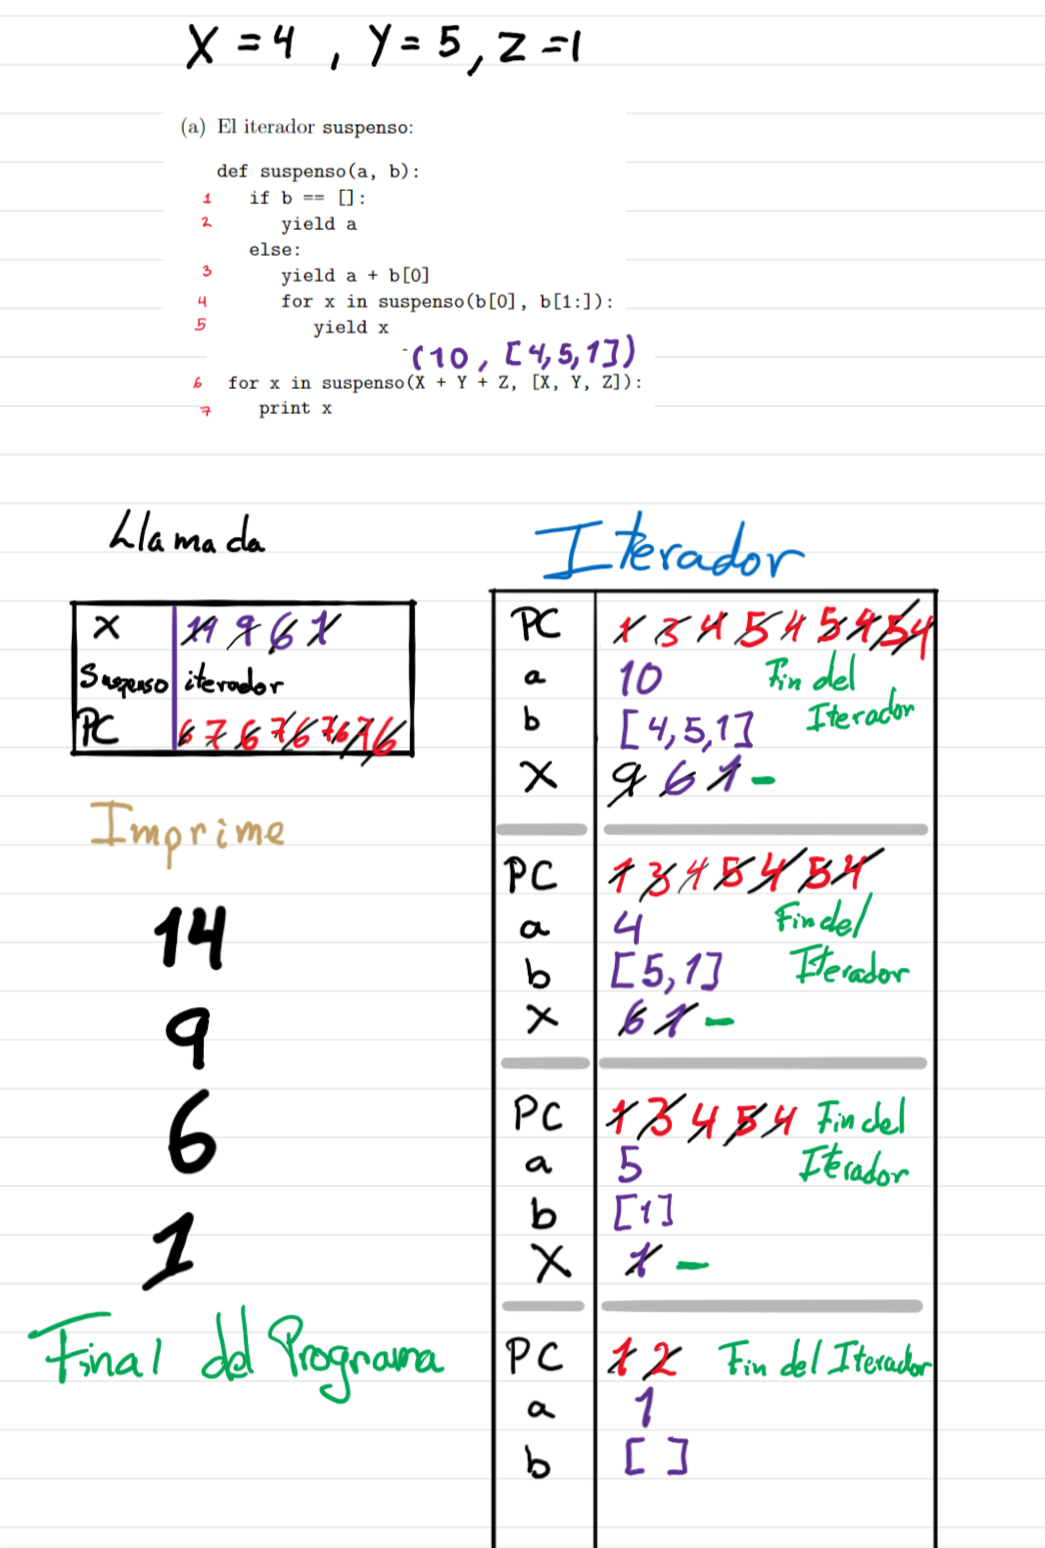 X = 4 , Y = 5 , Z = 1
(a) El iterador suspenso:
def suspenso(a, b):
1 if b == []:
2 yield a
else:
3 yield a + b[0]
4 for x in suspenso(b[0], b[1:]):
5 yield x
(10, [4,5,1])
6 for x in suspenso(X + Y + Z, [X, Y, Z]):
7 print x
Llamada
x 14 9 6 1
Suspenso iterador
PC 6 7 6 7 6 7 6 7 6
Imprime
14
9
6
1
Final del Programa
Iterador
PC 1 3 4 5 4 5 4 5 4
a 10 Fin del
b [4,5,1] Iterador
X 9 6 1 -
PC 1 3 4 5 4 5 4
a 4 Fin del
b [5,1] Iterador
X 6 1 -
PC 1 3 4 5 4 Fin del
a 5 Iterador
b [1]
X 1 -
PC 1 2 Fin del Iterador
a 1
b [ ]